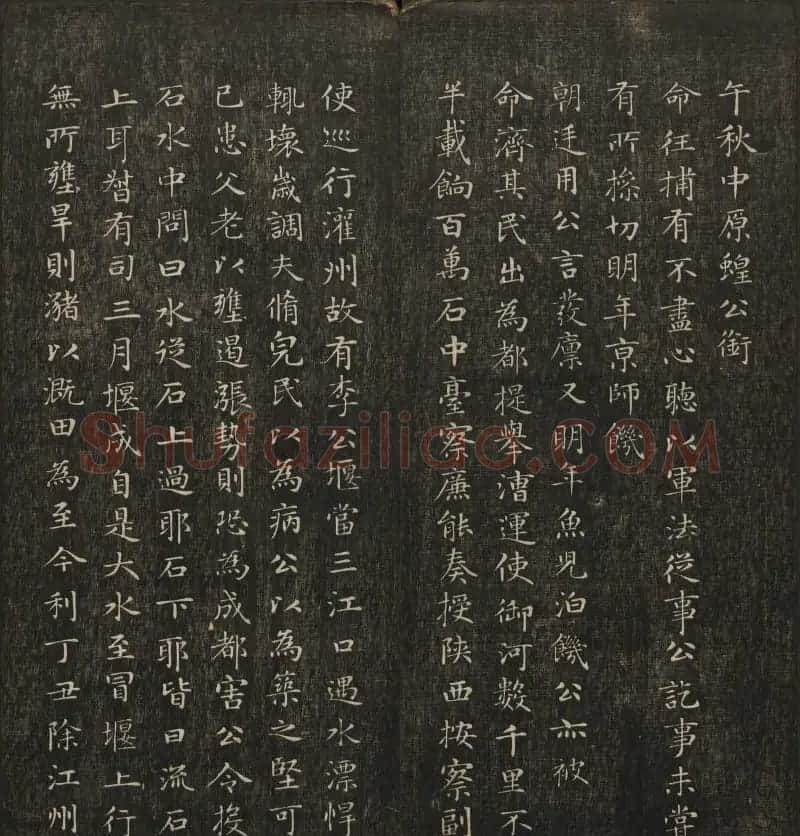 午秋中原蝗公銜
命往捕有不盡心聽以軍法從事公訖事未嘗
有所搽切明年京師饑
朝廷用公言發廪又明年魚児泊饑公亦被
命濟其民出為都提舉漕運使御河数千里不
半載餉百萬石中臺察廉能奏授陕西按察副
使巡行灌州故有李公堰當三江口遇水漂悍
輒壞歳調夫脩皃民以為病公以為築之堅可
已患父老以壅遏漲勢則恐為成都害公令投
石水中問曰水從石上過耶石下耶皆曰流石
上耳督有司三月堰成自是大水至冒堰上行
無所壅旱則瀦以溉田為至今利丁丑除江州
Shufaziliao.COM